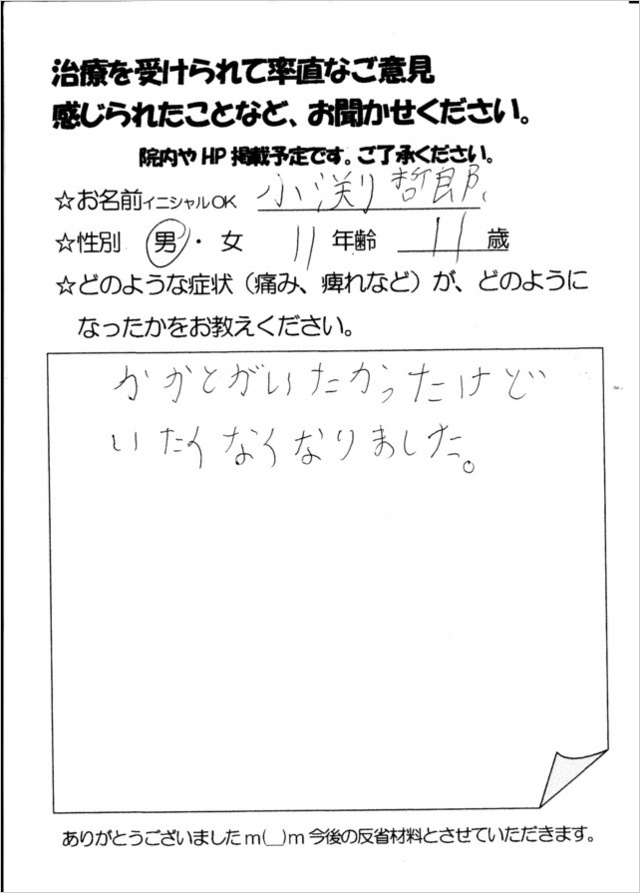 治療を受けられて率直なご意見
感じられたことなど、お聞かせください。
院内やHP掲載予定です。ご了承ください。
☆お名前イニシャルOK 小渕哲郎
☆性別 男・女 11 年齢 11 歳
☆どのような症状（痛み、痺れなど）が、どのように
なったかをお教えください。
かかとがいたかったけど
いたくなくなりました。
ありがとうございましたm(__)m今後の反省材料とさせていただきます。